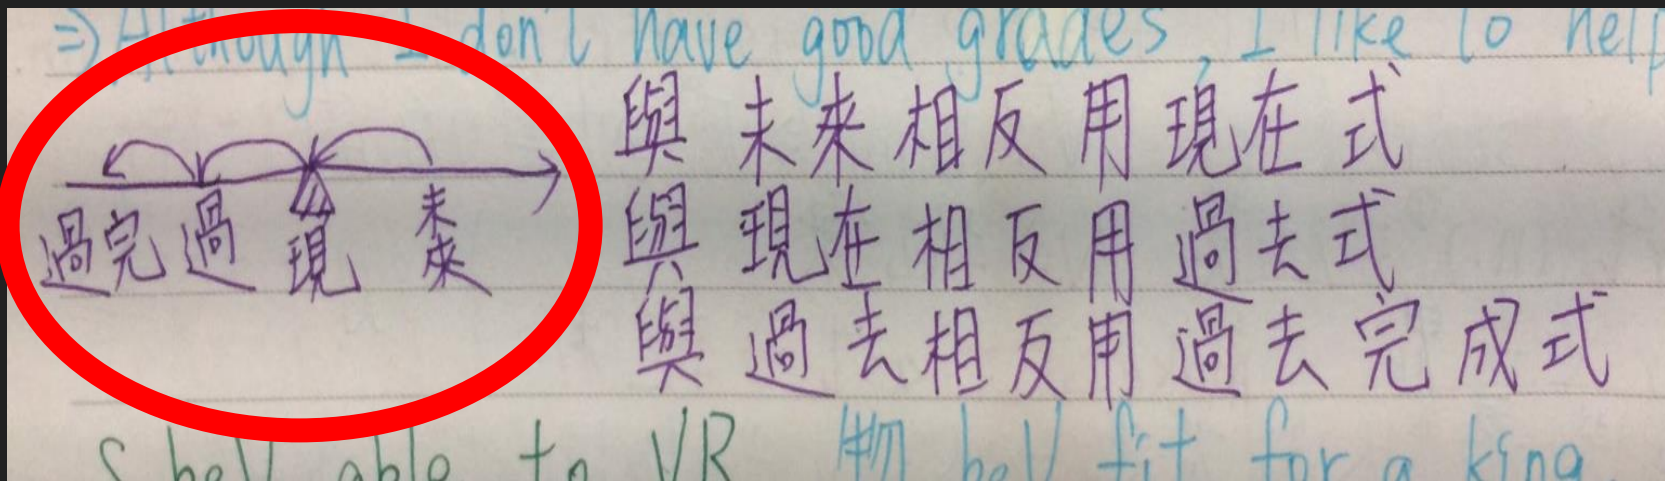 ⇒) Although I don't have good grades, I like to help
與未來相反用現在式
過完 過 現 未來
與現在相反用過去式
與過去相反用過去完成式
S beV able to VR 物 beV fit for a king